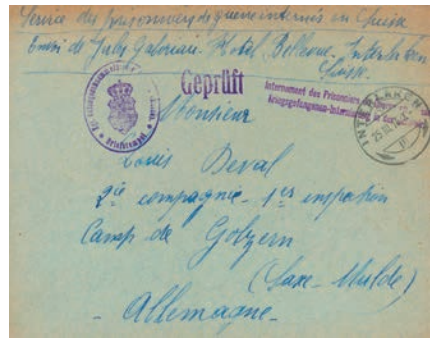 Service des prisonniers de guerre internés en Suisse
Envoi de Jules Hotel Bellevue. Interlaken
Suisse.
Geprüft
Internement des Prisonniers de
Kriegsgefangenen-
Briefstempel
INTERLAKEN
Monsieur
Louis Deval
2ie compagnie - 1er inspection
Camp de Golzern
(Saxe-Mulde)
- Allemagne -